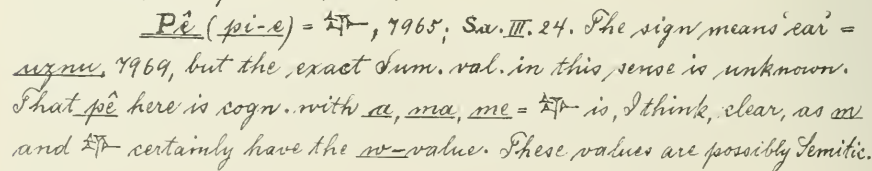 Pê (pi-e) = 𒉿, 7965; Sa. III. 24. The sign means 'ear' =
uznu, 7969, but the exact Sum. val. in this sense is unknown.
That pê here is cogn. with a, ma, me = 𒉿 is, I think, clear, as m
and 𒉿 certainly have the w-value. These values are possibly Semitic.